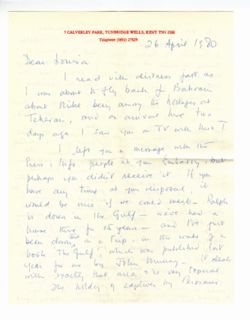 7 CALVERLEY PARK, TUNBRIDGE WELLS, KENT TN1 2SH
Telephone (0892) 27829
26 April 1980
Dear Louisa
I read with distress just as
I was about to fly back from Bahrain
about being among the hostages in
Teheran, and on arrival here two
days ago I saw you on TV with him!
I left you a message with the
Press, Info people at your Embassy, but
perhaps you didn't receive it. If you
have any time at your disposal, it
would be nice if we could meet - Ralph
is down in the Gulf - we've had a
house there for years - and I've just
been down on a trip in the wake of my
book The Gulf, which was published last
year for me by John Murray. It deals
with exactly that area & is very topical
The of captives by Persians